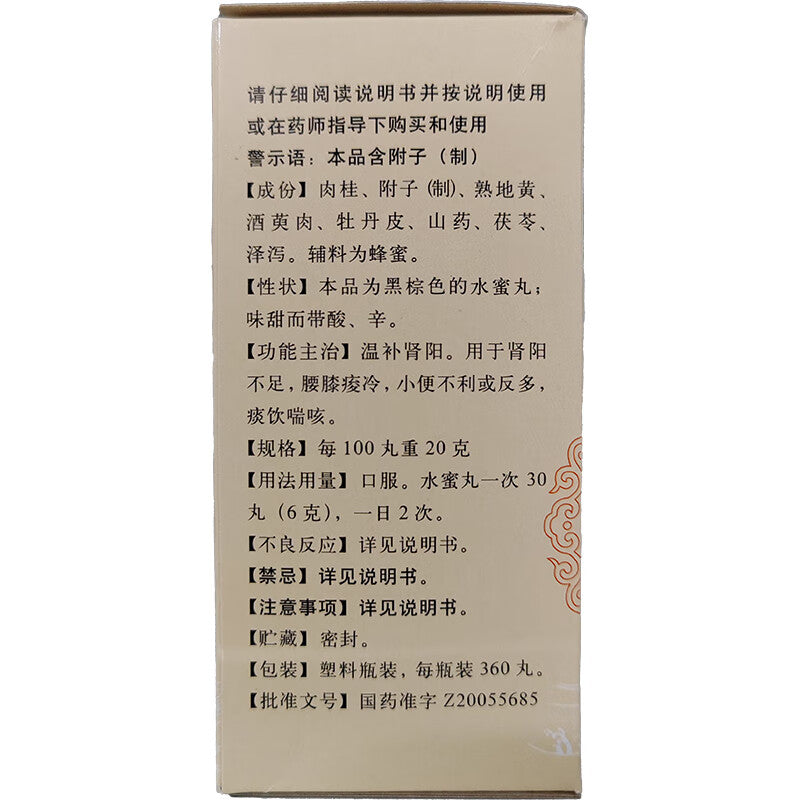 请仔细阅读说明书并按说明使用
或在药师指导下购买和使用
警示语：本品含附子（制）
【成份】肉桂、附子(制)、熟地黄、
酒萸肉、牡丹皮、山药、茯苓、
泽泻。辅料为蜂蜜。
【性状】本品为黑棕色的水蜜丸；
味甜而带酸、辛。
【功能主治】温补肾阳。用于肾阳
不足，腰膝痠冷，小便不利或反多，
痰饮喘咳。
【规格】每 100 丸重 20 克
【用法用量】口服。水蜜丸一次 30
丸（6 克），一日 2 次。
【不良反应】详见说明书。
【禁忌】详见说明书。
【注意事项】详见说明书。
【贮藏】密封。
【包装】塑料瓶装，每瓶装 360 丸。
【批准文号】国药准字 Z20055685